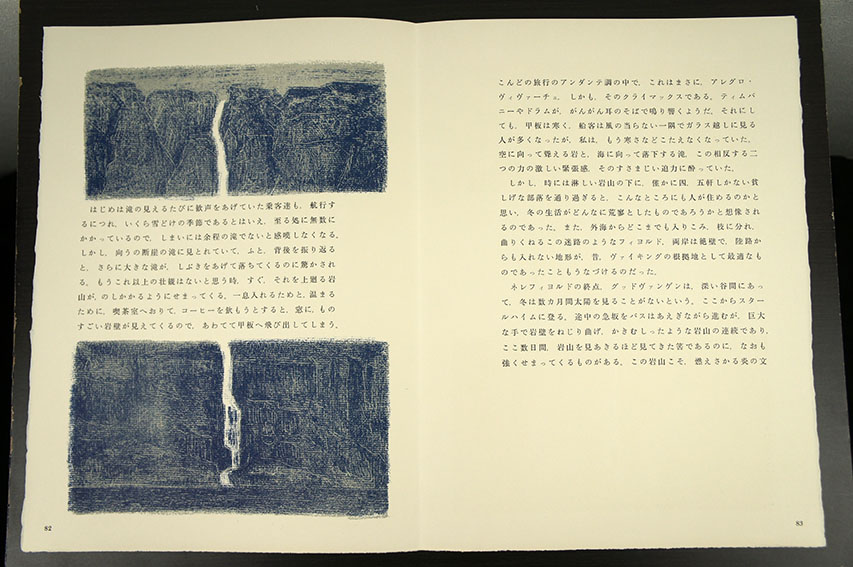 はじめは滝の見えるたびに歓声をあげていた乗客達も、航行す
るにつれ、いくら雪どけの季節であるとはいえ、至る処に無数に
かかっているので、しまいには余程の滝でないと感嘆しなくなる。
しかし、向うの断崖の滝に見とれていて、ふと、背後を振り返る
と、さらに大きな滝が、しぶきをあげて落ちてくるのに驚かされ
る。もうこれ以上の壮観はないと思う時、すぐ、それを上廻る岩
山が、のしかかるようにせまってくる。一息入れるためと、温まる
ために、喫茶室へおりて、コーヒーを飲もうとすると、窓に、もの
すごい岩壁が見えてくるので、あわてて甲板へ飛び出してしまう。
82
こんどの旅行のアンダンテ調の中で、これはまさに、アレグロ・
ヴィヴァーチェ、しかも、そのクライマックスである。ティムパ
ニーやドラムが、がんがん耳のそばで鳴り響くようだ。それにし
ても、甲板は寒く、船客は風の当らない一隅でガラス越しに見る
人が多くなったが、私は、もう寒さなどこたえなくなっていた。
空に向って聳える岩と、海に向って落下する滝、この相反する二
つの力の激しい緊張感、そのすさまじい迫力に酔っていた。
しかし、時には淋しい岩山の下に、僅かに四、五軒しかない貧
しげな部落を通り過ぎると、こんなところにも人が住めるのかと
思い、冬の生活がどんなに荒寥としたものであろうかと想像され
るのであった。また、外海からどこまでも入りこみ、枝に分れ、
曲りくねるこの迷路のようなフィヨルド、両岸は絶壁で、陸路か
らも入れない地形が、昔、ヴァイキングの根拠地として最適なも
のであったこともうなづけるのだった。
ネレフィヨルドの終点、グッドヴァンゲンは、深い谷間にあっ
て、冬は数カ月間太陽を見ることがないという。ここからスター
ルハイムに登る。途中の急坂をバスはあえぎながら進むが、巨大
な手で岩壁をねじり曲げ、かきむしったような岩山の連続であり、
ここ数日間、岩山を見あきるほど見てきた筈であるのに、なおも
強くせまってくるものがある。この岩山こそ、燃えさかる炎の文
83